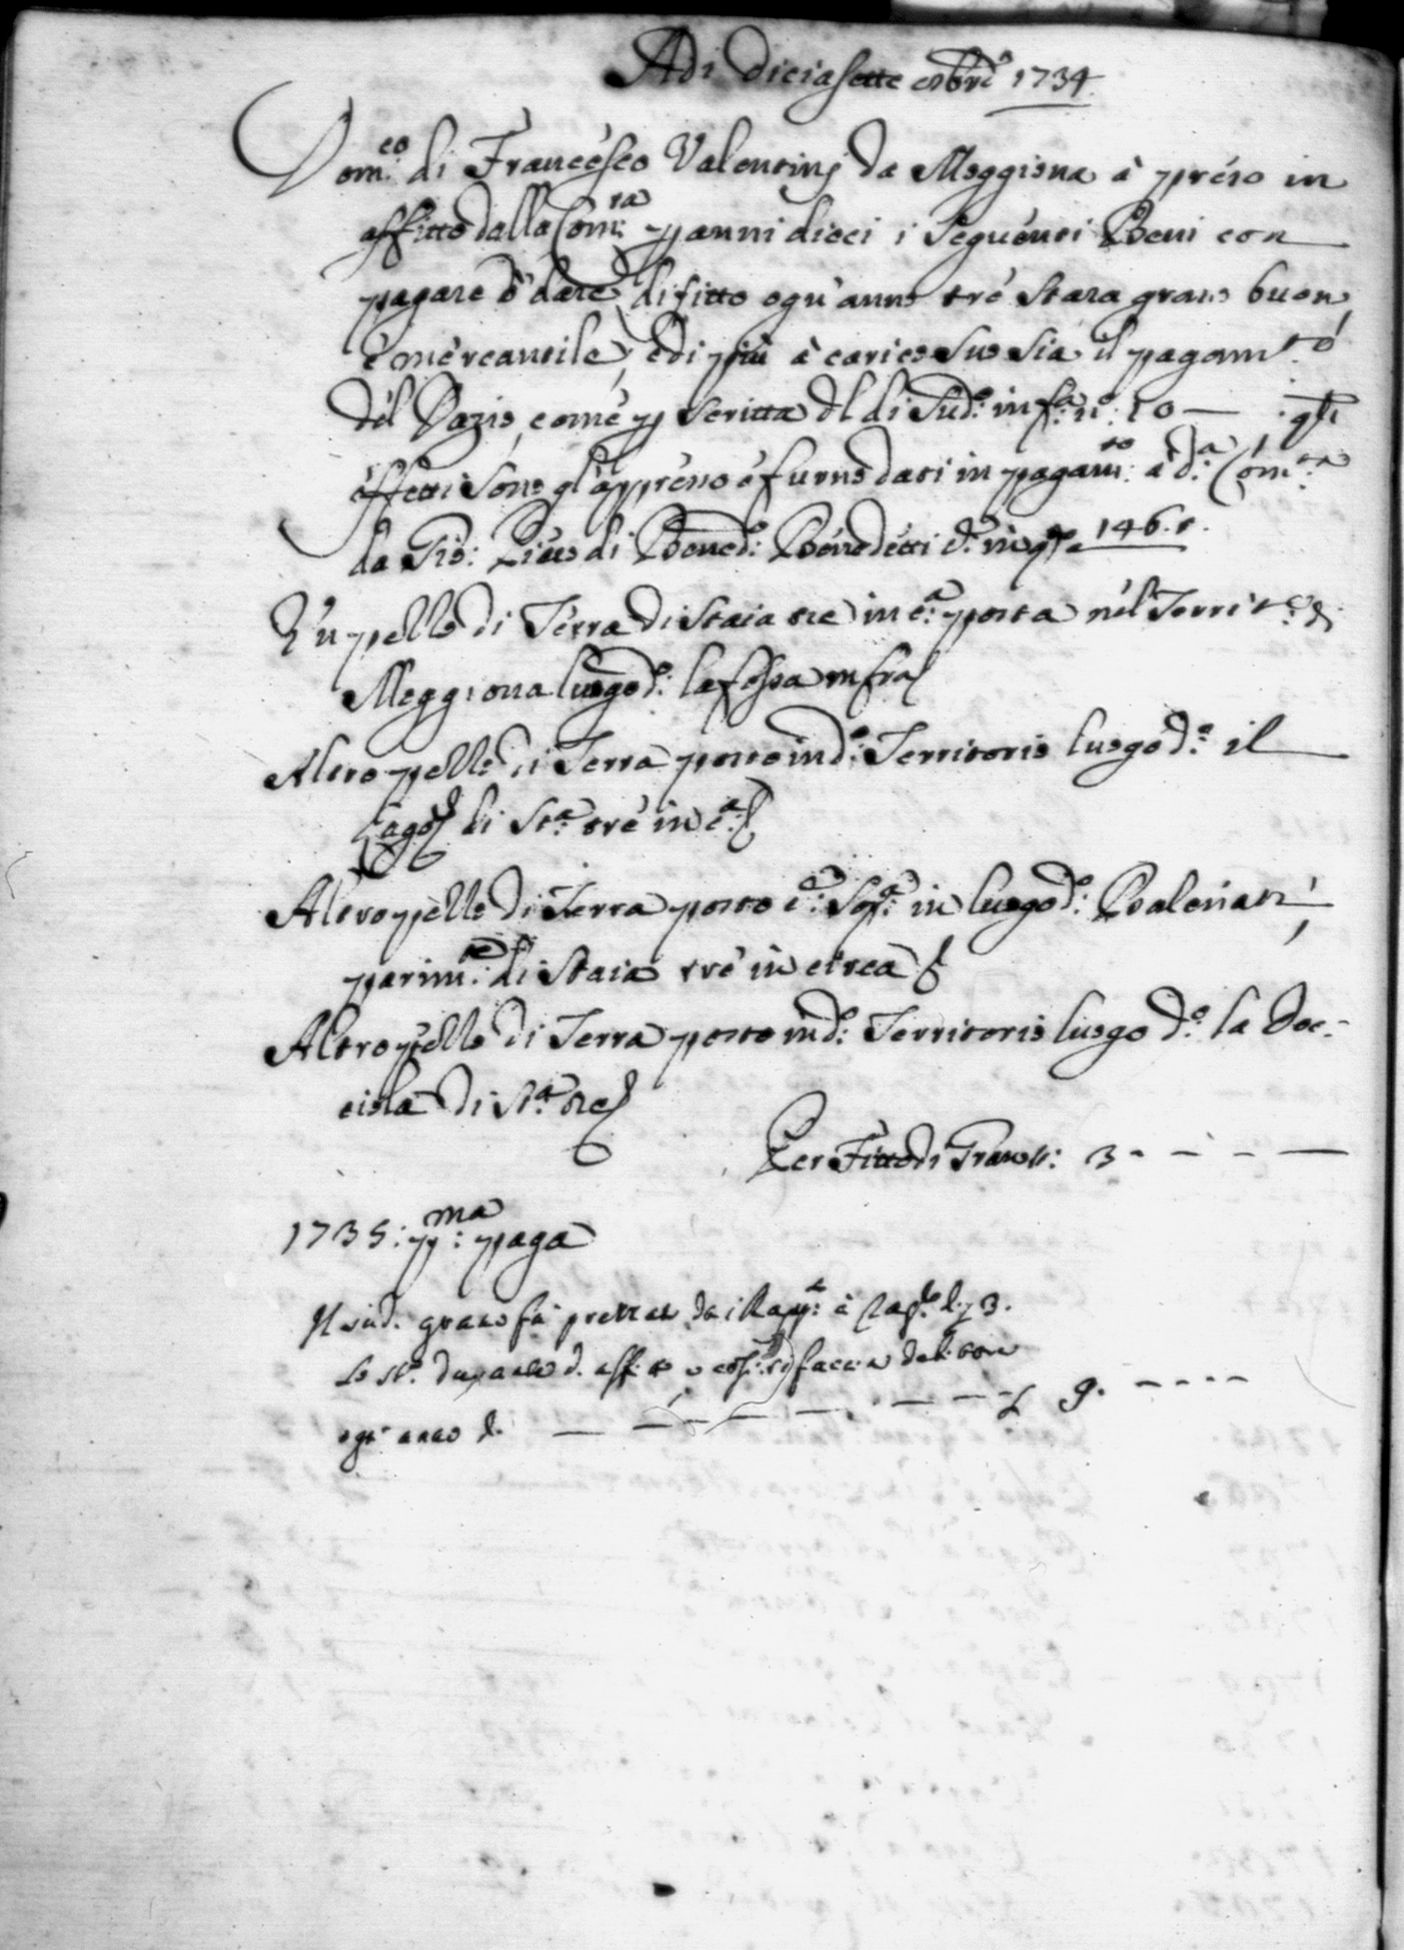 Adi diciasette 9bre 1734
Dom.co di Francesco Valentinj da Meggiona à preso in
affitto dalla Com.ta p anni dieci i seguenti Beni con
pagare ò dare di fitto ogn'anno tré stara grano buon
è mercantile, e di più à carico suo sia il pagam.to
del Dazio, come p scritta dl di sud.o in f.a n.o 10 — qli
effetti sono gl'appreno è furno dati in pagam.to à d.a Com.ta
da Gio: di Bened.o Benedetti 146.
Un pello di Terra di staia tre in c.a posta nel Territ.o di
Meggiona luogo d.o la fossa infra
Altro pello di Terra posto in d.o Territorio luogo d.o il
Lago di St.a tré in c.a
Altro pello di Terra posto c.e Sop.a in luogo d.o
parim.te di Staia tré in circa
Altro pello di Terra posto in d.o Territorio luogo d.o la Doc-
ciola di St.a tre
Per Fitto di Grano st: 3 - - - —
1735: p.ma paga
Il sud. grano fù
Lo st.o d. aff.to si faccia
ogn'anno — — — — — — — 9. - - - -